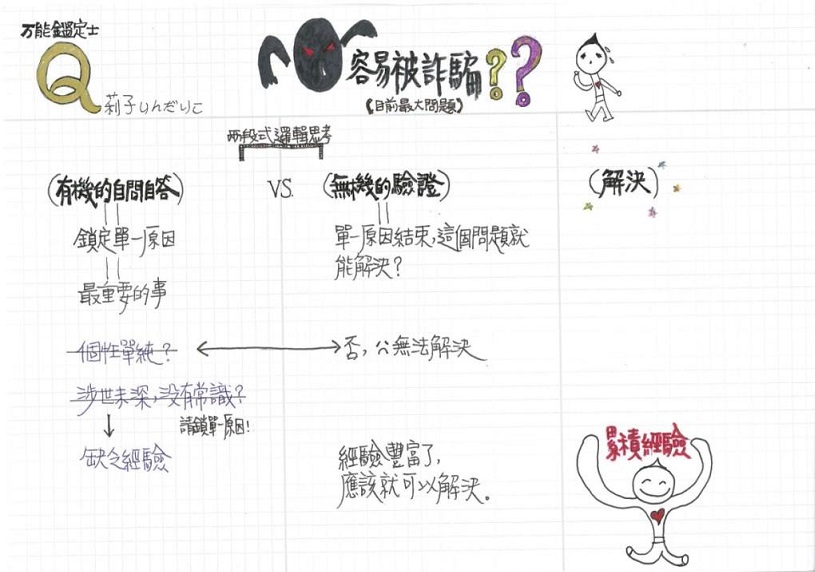 万能鑑定士
Q
莉子りんだりこ
容易被詐騙??
(目前最大問題)
兩段式邏輯思考
(有機的自問自答)
VS.
(無機的驗證)
(解決)
鎖定單一原因
單一原因結束,這個問題就
能解決?
最重要的事
個性單純?
否,∴無法解決
涉世未深,沒有常識?
請鎖單一原因!
缺乏經驗
經驗豐富了,
應該就可以解決。
累積經驗